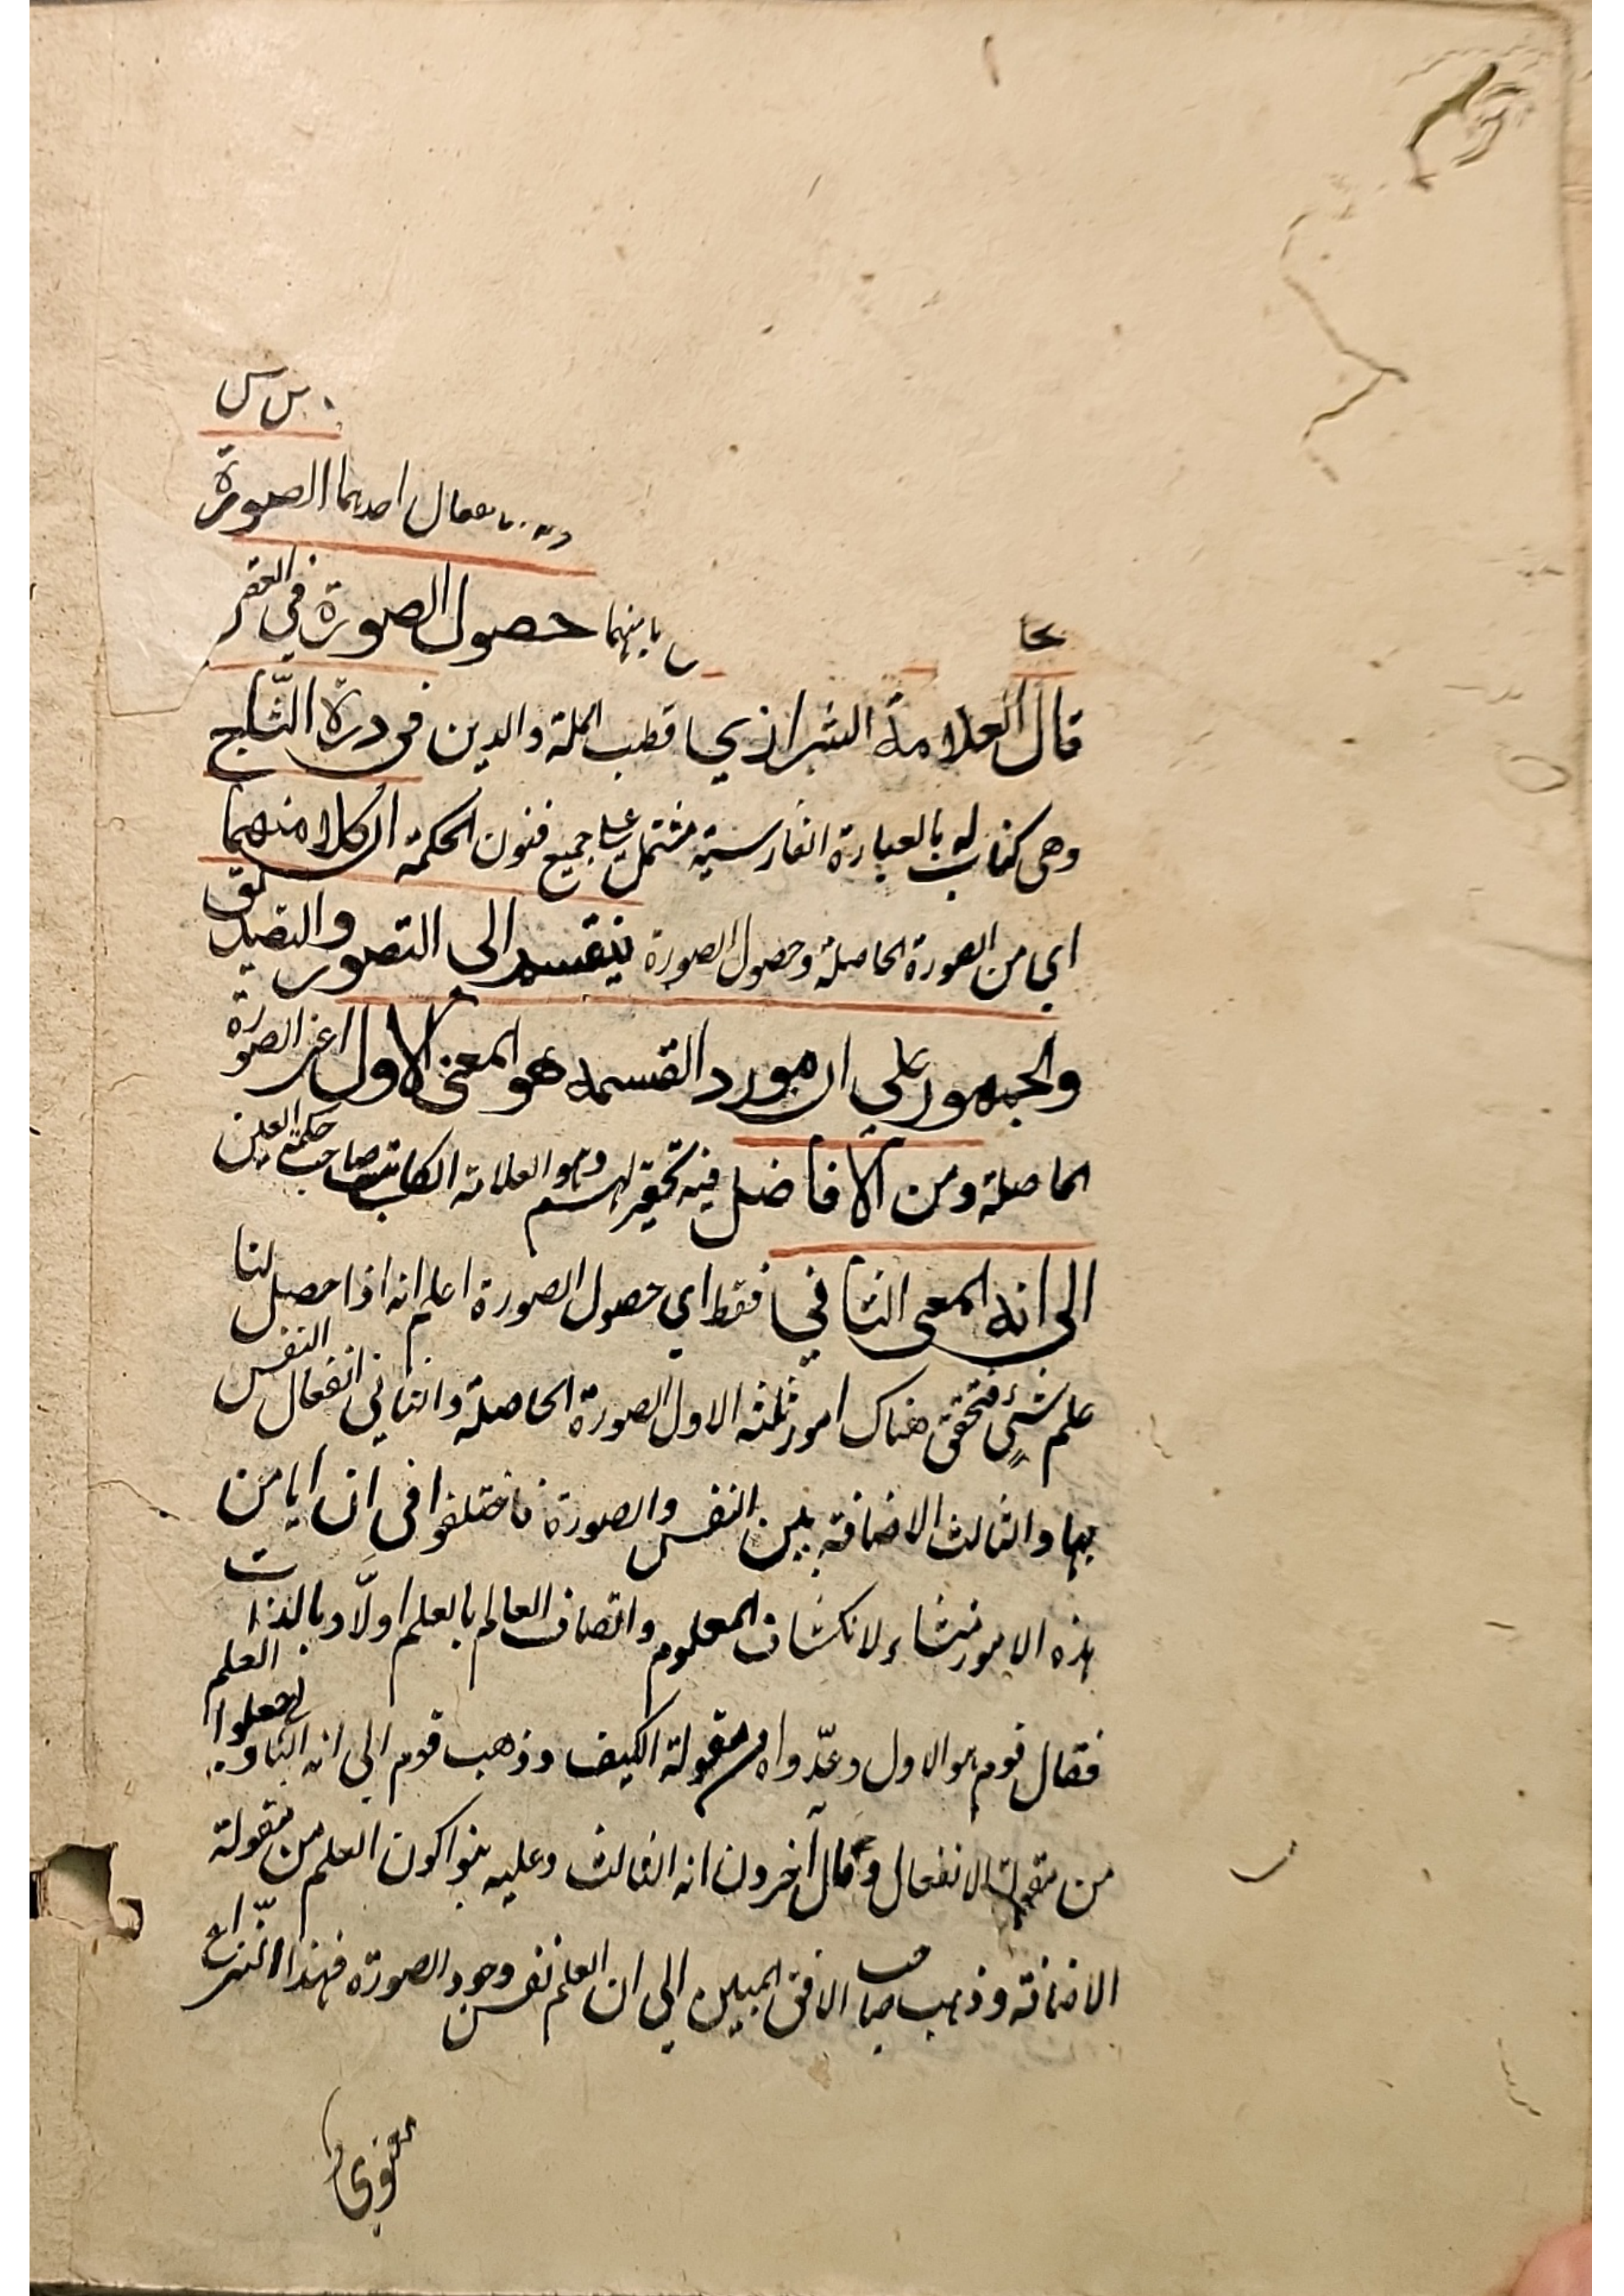 احدهما الصورة
حصول الصورة في العقل
قال العلامة الشيرازي قطب الملة والدين في درة التاج
وهى كتاب له بالعبارة الفارسية مشتمل على جميع فنون الحكمة ان كلا منهما
اي من الصورة الحاصلة وحصول الصورة ينقسم الى التصور والتصديق
والجمهور على ان مورد القسمة هو المعنى الاول اعنى الصورة
الحاصلة ومن الافاضل فيه وهو العلامة الكاتبي صاحب حكمة العين
الى انه المعنى الثاني فقط اي حصول الصورة اعلم انه اذا حصل لنا
علم شئ فتحقق هناك امور ثلثه الاول الصورة الحاصلة والثاني انفعال النفس
بها والثالث الاضافة بين النفس والصورة فاختلفوا فى ان ايا من
هذه الامور منشاء لانكشاف المعلوم واتصاف العالم بالعلم اولا وبالذات
فقال قوم هو الاول وعدّوا من مقولة الكيف وذهب قوم الى انه الثاني فجعلوا العلم
من مقولة الانفعال وقال آخرون انه الثالث وعليه بنوا كون العلم من مقولة
الاضافة وذهب صاحب الافق المبين الى ان العلم نفس وجود الصورة فهذا النزاع
معنوي